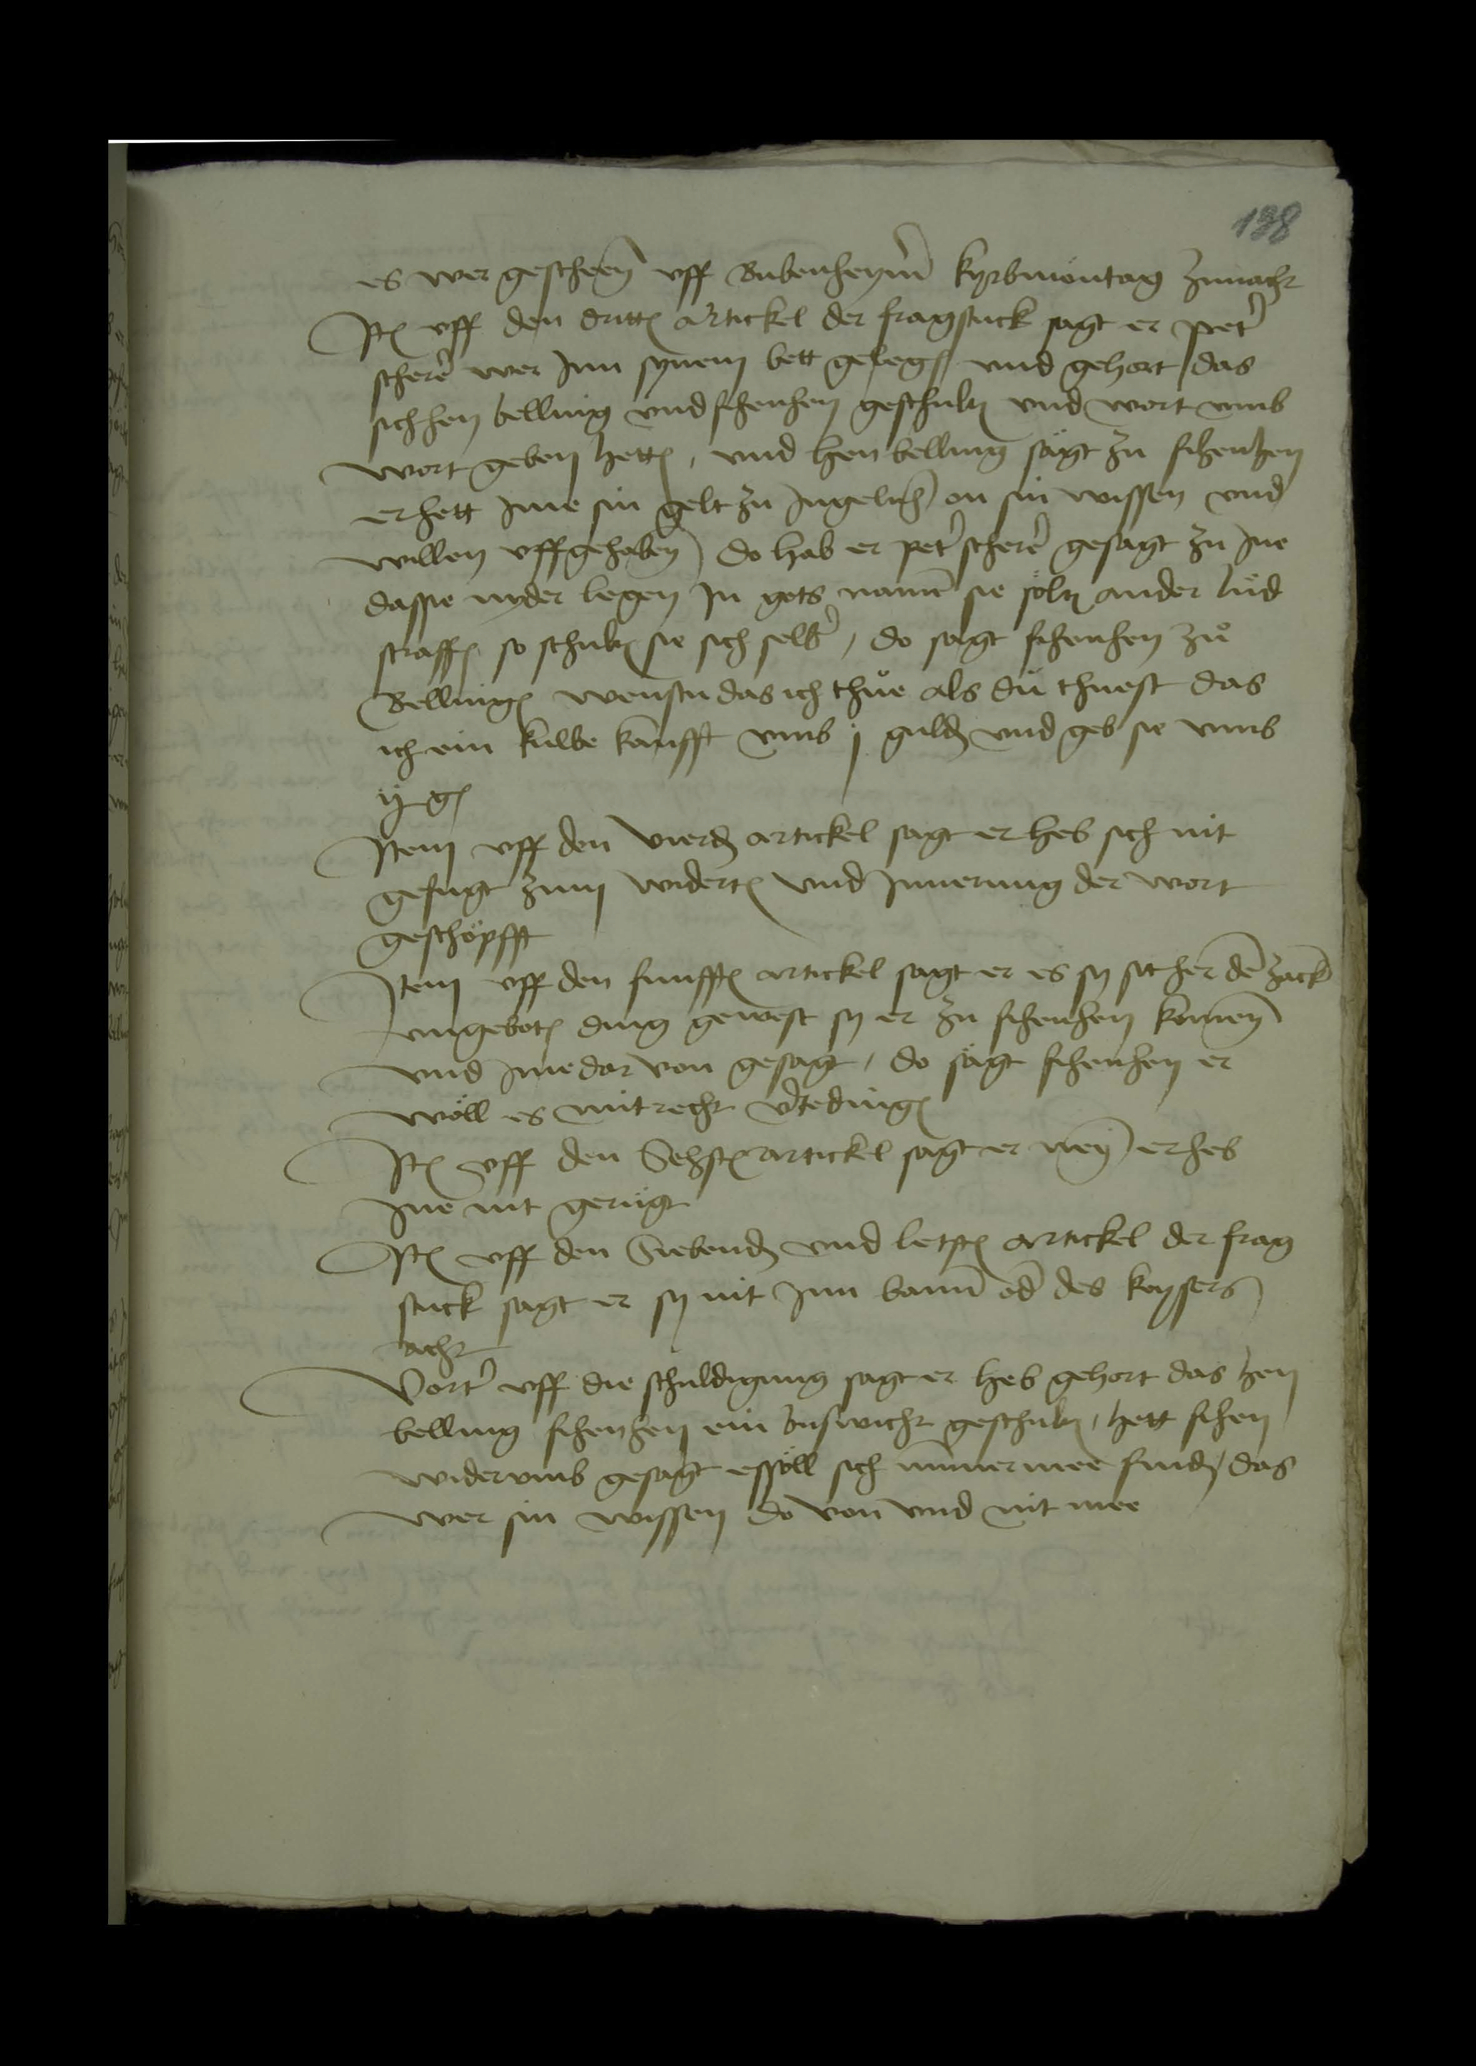 138
es wer gescheen uff Bubenheymer kyrbmontag zunacht
Itē uff den drittē artickel der fragstuck sagt er peter
scherer wer Inn synem bett gelegē und gehort das
sich hen belling und schenhen geschultē und wort umb
wort geben hettē, und hen belling sagt zu schenhen
er hett Ime sin gelt zu Ingelnh on sin wissen und
willen uffgehaben do hab er peter scherer gesagt zu Ine
das sie nyder legen In gots namē sie soltē ander lüd
straffē so schultē sie sich selber, do sagt schenhen zu
Bellingē wenstu das ich thue als du thuest das
ich ein kulbe kaufft umb j guldē und geb sie umb
ij gē
Item uff den vierdē artickel sagt er heb sich nit
gefugt zum widertē und Innerung der wort
geschöpfft
Item uff den funfftē artickel sagt er es sy sither dē
ungebotē ding gewest sy er zu schenhen komen
und Ime dar von gesagt, do sagt schenhen er
wöll es mit recht vertedingē
Itē uff den Sehstē artickel sagt er neyn er heb
Ine nit gerügt
Itē uff den Siebendē und letstē artickel der frag
stuck sagt er sy nit Inn bann oder des keysers
acht
Vorter uff die schuldigung sagt er heb gehort das hen
belling schenhen ein boswicht geschultē, hett schen
widerumb gesagt es söll sich nummermee findē, das
wer sin wissen do von und nit mee